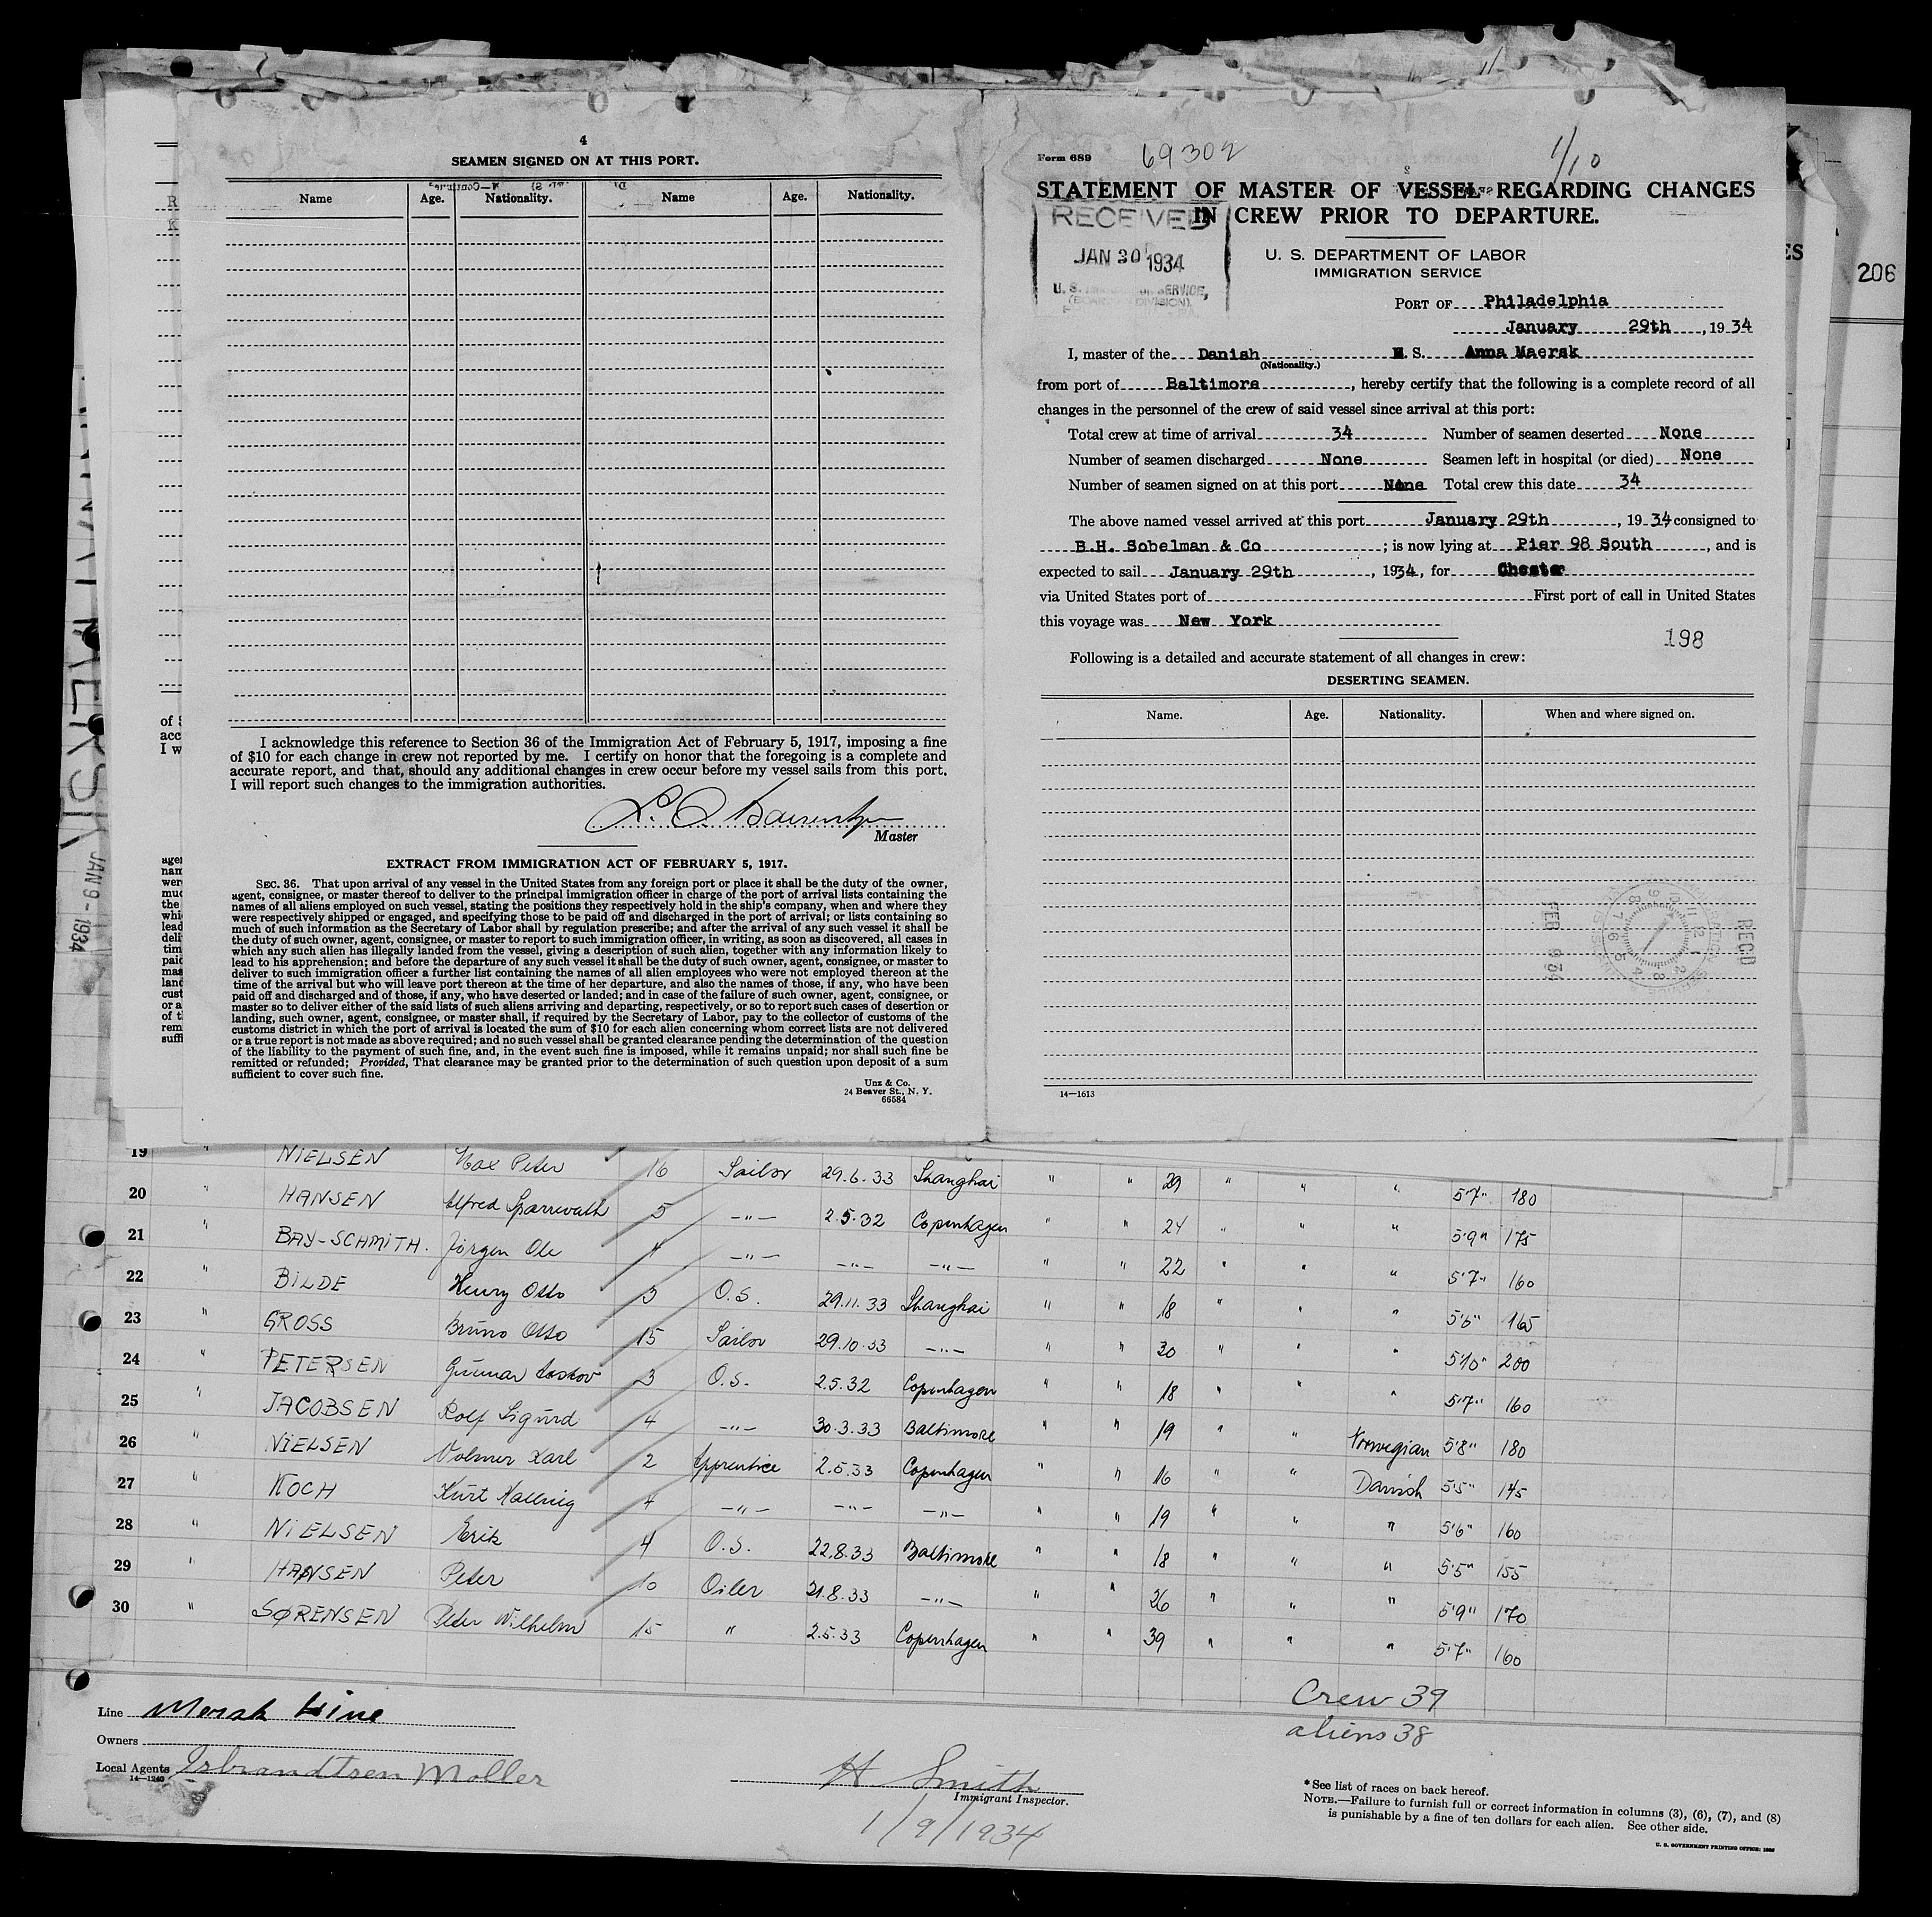 4
SEAMEN SIGNED ON AT THIS PORT.
Name Age. Nationality. Name Age. Nationality.
I acknowledge this reference to Section 36 of the Immigration Act of February 5, 1917, imposing a fine
of $10 for each change in crew not reported by me. I certify on honor that the foregoing is a complete and
accurate report, and that, should any additional changes in crew occur before my vessel sails from this port,
I will report such changes to the immigration authorities.
Master
EXTRACT FROM IMMIGRATION ACT OF FEBRUARY 5, 1917.
SEC. 36. That upon arrival of any vessel in the United States from any foreign port or place it shall be the duty of the owner,
agent, consignee, or master thereof to deliver to the principal immigration officer in charge of the port of arrival lists containing the
names of all aliens employed on such vessel, stating the positions they respectively hold in the ship's company, when and where they
were respectively shipped or engaged, and specifying those to be paid off and discharged in the port of arrival; or lists containing so
much of such information as the Secretary of Labor shall by regulation prescribe; and after the arrival of any such vessel it shall be
the duty of such owner, agent, consignee, or master to report to such immigration officer, in writing, as soon as discovered, all cases in
which any such alien has illegally landed from the vessel, giving a description of such alien, together with any information likely to
lead to his apprehension; and before the departure of any such vessel it shall be the duty of such owner, agent, consignee, or master to
deliver to such immigration officer a further list containing the names of all alien employees who were not employed thereon at the
time of the arrival but who will leave port thereon at the time of her departure, and also the names of those, if any, who have been
paid off and discharged and of those, if any, who have deserted or landed; and in case of the failure of such owner, agent, consignee, or
master so to deliver either of the said lists of such aliens arriving and departing, respectively, or so to report such cases of desertion or
landing, such owner, agent, consignee, or master shall, if required by the Secretary of Labor, pay to the collector of customs of the
customs district in which the port of arrival is located the sum of $10 for each alien concerning whom correct lists are not delivered
or a true report is not made as above required; and no such vessel shall be granted clearance pending the determination of the question
of the liability to the payment of such fine, and, in the event such fine is imposed, while it remains unpaid; nor shall such fine be
remitted or refunded; Provided, That clearance may be granted prior to the determination of such question upon deposit of a sum
sufficient to cover such fine.
Unz & Co.
24 Beaver St., N. Y.
66584
Form 689 69302 1/10
STATEMENT OF MASTER OF VESSEL REGARDING CHANGES
IN CREW PRIOR TO DEPARTURE.
RECEIVED
JAN 30 1934
U. S. DEPARTMENT OF LABOR
IMMIGRATION SERVICE
PORT OF Philadelphia
January 29th, 1934
I, master of the Danish M.S. Anna Maersk
(Nationality.)
from port of Baltimore, hereby certify that the following is a complete record of all
changes in the personnel of the crew of said vessel since arrival at this port:
Total crew at time of arrival 34 Number of seamen deserted None
Number of seamen discharged None Seamen left in hospital (or died) None
Number of seamen signed on at this port None Total crew this date 34
The above named vessel arrived at this port January 29th, 1934 consigned to
B.H. Sobelman & Co; is now lying at Pier 98 South, and is
expected to sail January 29th, 1934, for Chester
via United States port of First port of call in United States
this voyage was New York
198
Following is a detailed and accurate statement of all changes in crew:
DESERTING SEAMEN.
Name. Age. Nationality. When and where signed on.
REC'D
FEB 9 34
14—1613
206
JAN 9 - 1934
19 NIELSEN Max Peter 16 Sailor 29.6.33 Shanghai " " 29 " " " 5'7" 180
20 " HANSEN Alfred 5 —"— 2.5.32 Copenhagen " " 24 " " " 5'9" 175
21 " BAY-SCHMITH. Jörgen Ole 4 —"— —"— —"— " " 22 " " " 5'7" 160
22 " BILDE Henry Otto 3 O.S. 29.11.33 Shanghai " " 18 " " " 5'6" 165
23 " GROSS Bruno Otto 15 Sailor 29.10.33 —"— " " 30 " " " 5'10" 200
24 " PETERSEN Gunnar 3 O.S. 2.5.32 Copenhagen " " 18 " " " 5'7" 160
25 " JACOBSEN Rolf Sigurd 4 —"— 30.3.33 Baltimore " " 19 " " Norwegian 5'8" 180
26 " NIELSEN Volmer Karl 2 Apprentice 2.5.33 Copenhagen " " 16 " " Danish 5'5" 145
27 " KOCH Kurt 4 —"— —"— —"— " " 19 " " " 5'6" 160
28 " NIELSEN Erik 4 O.S. 22.8.33 Baltimore " " 18 " " " 5'5" 155
29 " HANSEN Peter 10 Oiler 21.8.33 —"— " " 26 " " " 5'9" 170
30 " SØRENSEN Peter Wilhelm 15 " 2.5.33 Copenhagen " " 39 " " " 5'7" 160
Crew 39
aliens 38
Line Mersk Line
Owners
Local Agents Isbrandtsen Moller
14—1240
H Smith
Immigrant Inspector.
1/9/1934
* See list of races on back hereof.
NOTE.—Failure to furnish full or correct information in columns (3), (6), (7), and (8)
is punishable by a fine of ten dollars for each alien. See other side.
U. S. GOVERNMENT PRINTING OFFICE: